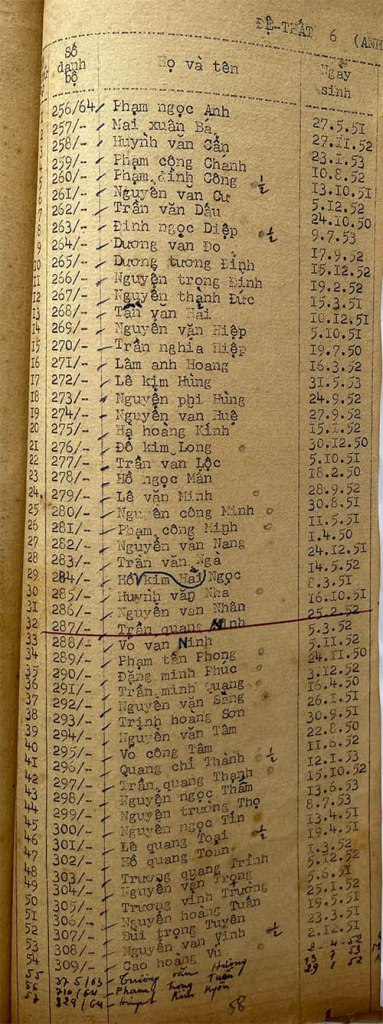 ĐỆ-THẤT 6 (ANH
Số danh bộ Họ và tên Ngày sinh
256/64 Phạm ngọc Anh 27.5.51
257/- Mai xuân Ba 27.II.52
258/- Huỳnh văn Cẩn 23.I.53
259/- Phạm công Chánh 10.8.52
5 260/- Phạm đình Công ½ 13.10.51
6 261/- Nguyễn văn Cư 5.12.52
7 262/- Trần văn Dậu 24.10.50
8 263/- Đinh ngọc Diệp ½ 9.7.53
9 264/- Dương van Đo 17.9.52
10 265/- Dương tương Định 15.12.52
11 266/- Nguyễn trọng Định 19.2.52
12 267/- Nguyễn thành Đức 15.3.51
13 268/- Tấn van Hai 10.12.51
14 269/- Nguyễn văn Hiệp 5.10.51
15 270/- Trần nghia Hiệp 19.7.50
16 271/- Lâm anh Hoang 16.3.52
17 272/- Lê kim Hùng 31.5.53
18 273/- Nguyễn phi Hùng 24.9.52
19 274/- Nguyễn van Huệ 27.9.52
20 275/- Hà hoàng Kính 15.I.52
21 276/- Đỗ kim Long 30.12.50
22 277/- Trần van Lộc 5.10.51
23 278/- Hồ ngọc Mân 18.2.50
24 279/- Lê văn Minh 28.9.52
25 280/- Nguyễn công Minh 30.8.51
26 281/- Phạm công Minh 11.5.51
27 282/- Nguyễn van Nang I.4.50
28 283/- Trần văn Ngà 24.12.51
29 284/- Hồ kim Hải Ngọc 14.5.52
30 285/- Huỳnh văn Nha 8.3.51
31 286/- Nguyễn van Nhân 16.10.51
32 287/- Trần quang Ninh 25.2.52
33 288/- Vo van Ninh 5.3.52
34 289/- Phạm tấn Phong 5.11.52
35 290/- Đặng minh Phúc 24.11.50
36 291/- Trần minh Quang 3.12.52
37 292/- Nguyễn văn Sang 16.4.50
38 293/- Trịnh hoàng Sơn 26.I.51
39 294/- Nguyễn văn Tâm 30.9.51
40 295/- Võ công Tâm 22.8.50
41 296/- Quang chí Thành ½ 11.6.52
42 297/- Trần quang Thạnh 12.I.53
43 298/- Nguyễn ngọc Thấm 15.10.52
44 299/- Nguyễn trương Thọ 13.6.53
45 300/- Nguyễn ngọc Tín 8.7.53
46 301/- Lê quang Toại ½ 13.4.51
47 302/- Hồ quang Toan 19.4.51
48 303/- Trương quang Trinh I.3.52
49 304/- Nguyễn văn Trọng 5.12.52
50 305/- Trương vinh Trường 5.6.51
51 306/- Nguyễn hoàng Tuấn 25.I.52
52 307/- Bùi trọng Tuyên 19.5.51
53 308/- Nguyễn van Vinh ½ 23.3.51
54 309/- Cao hoàng Vũ 2.12.51
55 Trương văn Hương
56 Phạm
57 329/64
58